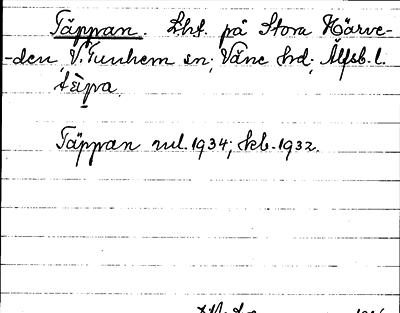 Täppan. Lht. på Stora Härve-
-den V. Tunhem sn; Väne hd; Älfsb. l.
tɛ̀pa
Täppan rul. 1934; kb. 1932.